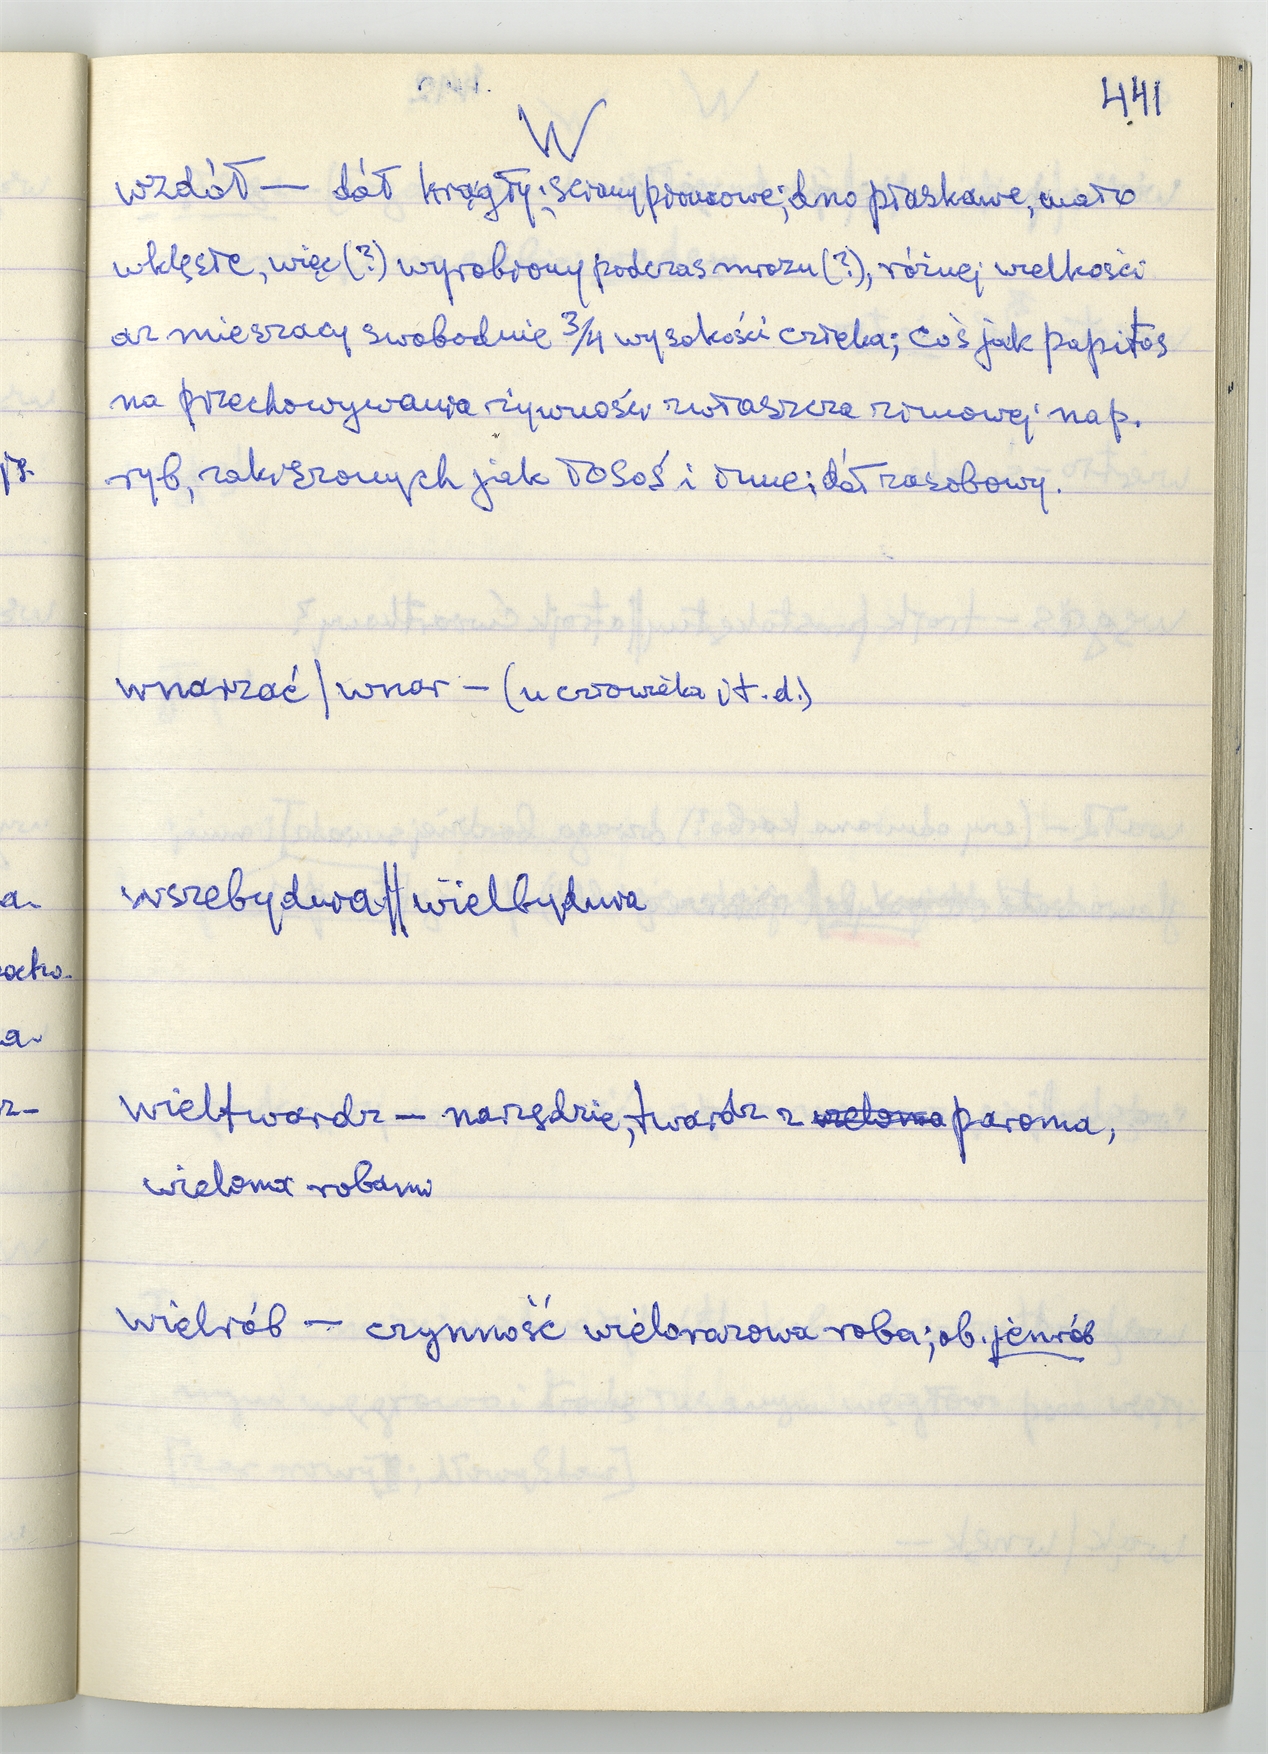 441
W
wzdół — dół krągły; ściany pionowe; dno piaskawe, mało
wklęsłe, więc (?) wyrobiony podczas mrozu (?), różnej wielkości
az mieszacy swobodnie 3/4 wysokości człeka; coś jak
na przechowywania żywności zwłaszcza zimowej nap.
ryb, zakiszonych jak łosoś i inne; dół zasobowy.
wnarzać / wnar — (u człowieka i t. d.)
wszebydwa // wielbydwa
wieltwardz — narzędzie, twardz z wieloma paroma,
wieloma robami
wielrób — czynność wielorazowa roba; ob. jenrób